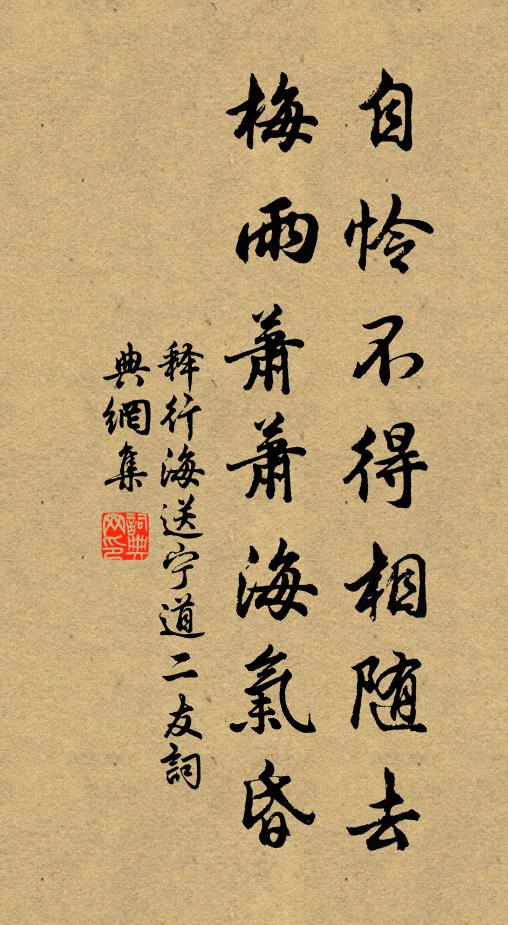 自怜不得相随去
梅雨蕭蕭海氣昏
释行海送宁道二友詞
典網集
詞典网印